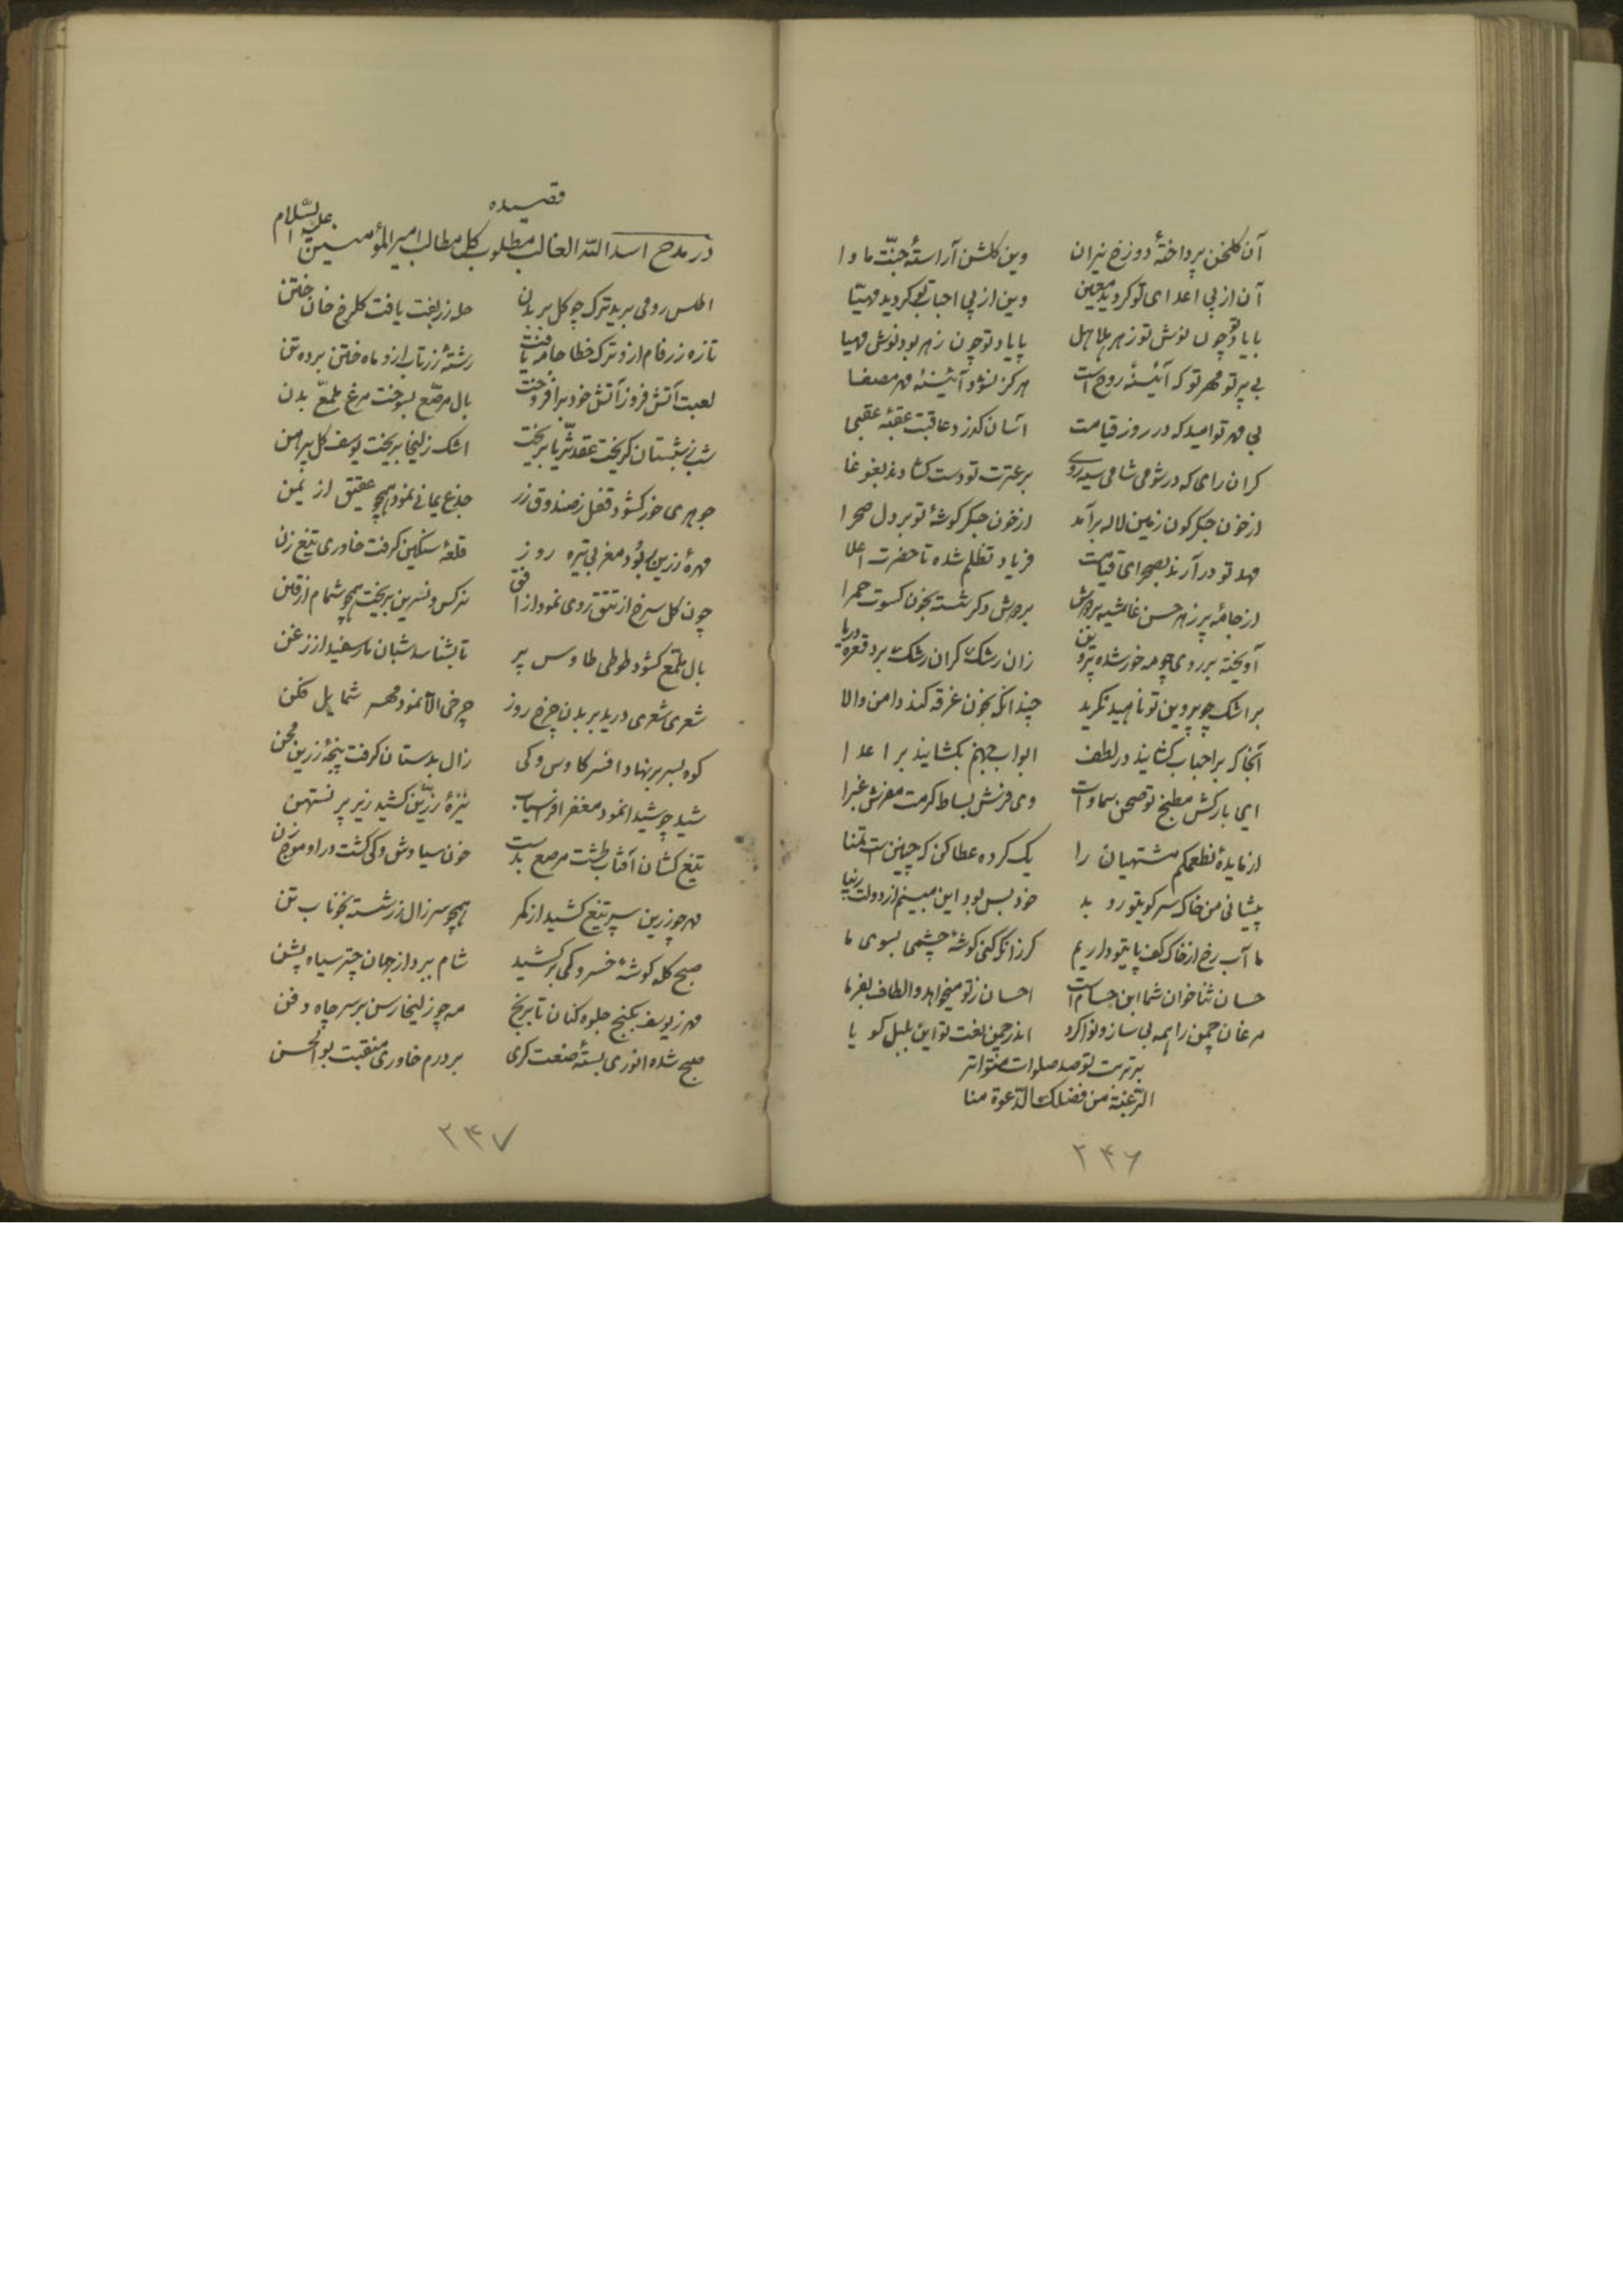 آن کلخن پرداختهٔ دوزخ نیران وین کلشن آراستهٔ جنّت ماوا
آن از پی اعدای تو کردید معین وین از پی احباب تو کردید مهیّا
با یاد تو چون نوش تو زهر هلاهل پا یاد تو چون زهر بود نوش مهیا
بی پرتو مهر تو که آئینهٔ روح است هرکز نشود آئینهٔ مهر مصفا
بی مهر تو امید که در روز قیامت آسان کذرد عاقبت عقبهٔ عقبی
کر ان رای که در شومی شامی سیه روی بر عترت تو دست کشادند بغوغا
از خون جکر کون زمین لاله برآمد از خون جکر کوشهٔ تو بر دل صحرا
مهد تو درآرند بصحرای قیامت فریاد تظلم شده تا حضرت اعلا
از جامهٔ پر زهر حسن غاشیه بر دوش بر دوش دکر شسته بخون کسوت حمرا
آویخته بر روی چو مه خورشده پروین زان رشک کران رشک برد قعر دریا
بر اشک چو پروین تو ناهید نکرید چندانکه بخون غرقه کند دامن والا
آنجا که بر احباب کشایند در لطف ابواب جهنم بکشایند بر اعدا
ای بارکش مطبخ تو صحن سماوات وی فرش بساط کرمت مفرش غبرا
از مایدهٔ نطعمکم مشتهیان را یک کرده عطا کن که چنین است تمنا
پیشانی من خاک سر کویتو روبد خود بس بود این مبینم از دولت دنیا
ما آب رخ از خاک کف پایتو داریم کر زانکه کنی کوشهٔ چشمی بسوی ما
حسان ثناخوان شما ابن حسام است احسان ز تو میخواهد و الطاف بفرما
مرغان چمن را همه بی ساز و نوا کرد اندر چمن نعت تو این بلبل کویا
بر تربت تو صد صلوات متواتر
الرّغبة من فضلک الدّعوة منا
۲۴۶
قصیده
در مدح اسد الله الغالب مطلوب کل مطالب امیر المؤمنین علیه السّلام
اطلس رومی برید ترک چو کل بر بدن حله زربفت یافت کلرخ خان ختن
تازه زرفام ازو ترک خطا جامه یافت رشتهٔ زرتاب ازو ماه ختن برده تن
لعبت آتش فروز آتش خود برافروخت بال مرصّع بسوخت مرغ ملمّع بدن
شب ز شبستان کریخت عقد ثریّا بریخت اشک زلیخا بریخت یوسف کل پیرهن
جوهری خور کشود قفل ز صندوق زر جذع یمانی نمود همچو عقیق از یمن
مهرهٔ زرین ربود مغربی تیره روز قلعهٔ سنکین کرفت خاوری تیغ زن
چون کل سرخ از تتق روی نمود از افق نرکس و نسرین بریخت همچو شمام از قرن
بال ملمّع کشود طوطی طاوس پر تا بشناسد شبان مار سفید از زغن
شعری شعری درید بر بدن چرخ روز چرخی الآ نمود مهر شمایل فکن
کوه بسر بر نهاد افسر کاوس وکی زال بدستان کرفت پنجهٔ زرین مجن
شید چو شیدا نمود مغفر افراسیاب نیزهٔ زرّین کشید زیر پر نستهن
تیغ کشان آفتاب طشت مرصع بدست خون سیاوش وکی کشت در او موج زن
مهر چو زرین سپر تیغ کشید از کمر همچو سر زال زر شسته بخوناب تن
صبح کله کوشهٔ خسرو کی برکشید شام ببرد از جهان چتر سیاه پشن
مهر ز یوسف بکنج جلوه کنان تا برنج مه چو زلیخا رسن بر سر چاه دقن
صبح شده انوری بستهٔ صنعت کری بر درم خاوری منقبت بو الحسن
۲۴۷